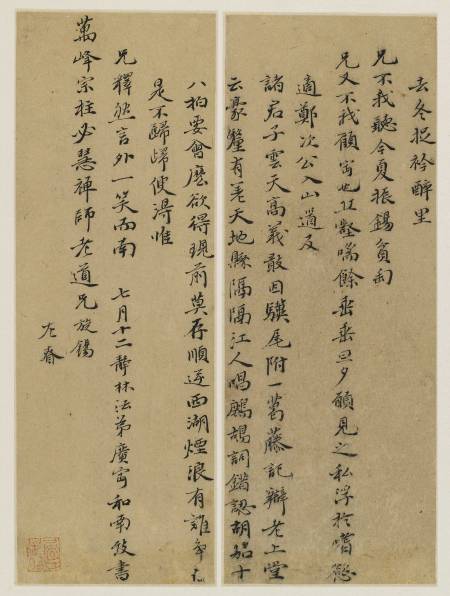 去冬捉衿醉里
兄不我聽今夏振錫負
兄又不我顧甯也狂壑喘餘垂垂旦夕願見之私浮於嗜慾
適鄭次公入山道及
諸君子雲天高義敢因驥尾附一葛藤記辯老上堂
云豪釐有差天地縣隔隔江人唱鷓鴣詞錯認胡笳十
八拍要會麼欲得現前莫存順逆西湖煙浪有誰爭
是不歸歸便得惟
兄釋然言外一笑而南 七月十二靜林法弟廣甯和南致書
萬峰宗柱必慧禪師老道兄放錫
左眷